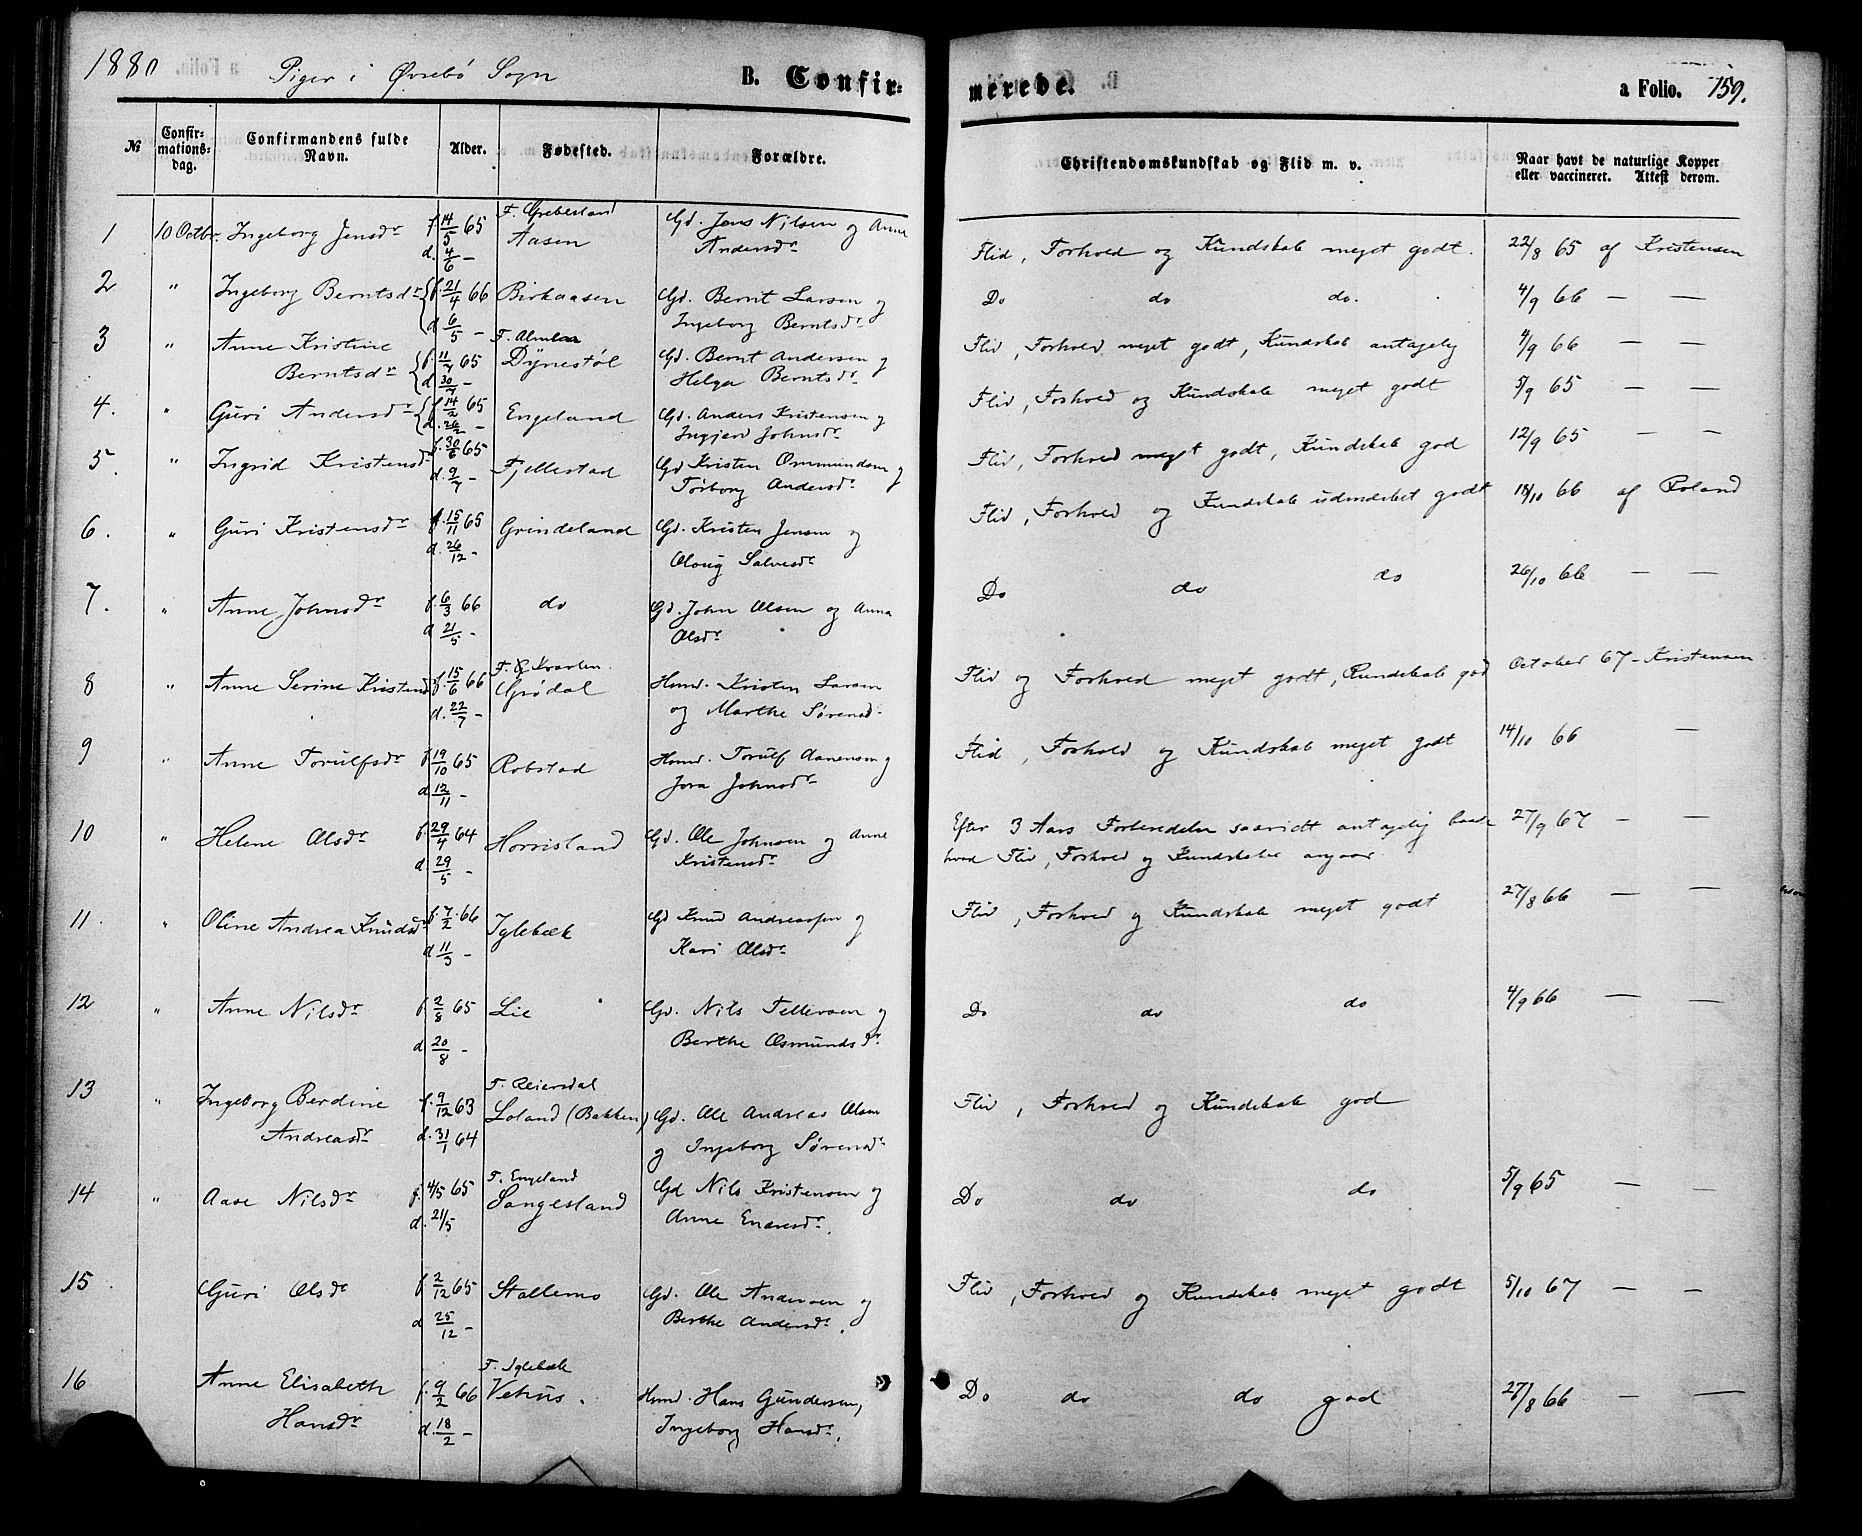 1880 Piger i Øvrebø Sogn B. Confirmerede. a Folio. 159.
№ Confirmationsdag. Confirmandens fulde Navn. Alder. Fødested. Forældre. Christendomskundskab og Flid m. v. Naar havt de naturlige Kopper eller vaccineret. Attest derom.
F. Greibesland
1 10 Octbr. Ingeborg Jensdr f. 14/5 65 Aasen Gd. Jens Nilsen og Anne Flid, Forhold og Kundskab meget godt. 22/8 65 af Kristensen
d. 4/6 — Andersdr
2 " Ingeborg Berntsdr f. 21/4 66 Birkaasen Gd. Bernt Larsen og Do do do. 4/9 66 — —
d. 6/5 — Ingeborg Berntsdr
3 " Anne Kristine F. Flid, Forhold meget godt, Kundskab antagelig 4/9 66 — —
Berntsdr f. 11/7 65 Dynestøl Gd. Bernt Andersen og
d. 30/7 — Helga Berntsdr
4. " Guri Andersdr f. 14/2 65 Engeland Gd. Anders Kristensen og Flid, Forhold og Kundskab meget godt 5/9 65 — —
d. 26/2 — Ingjerd Johnsdr
5. " Ingrid Kristensdr f. 30/6 65 Fjellestad Gd Kristen Ommundsen og Flid, Forhold meget godt, Kundskab god 12/9 65 — —
d. 9/7 — Torborg Andersdr
6. " Guri Kristensdr f. 15/11 65 Grindeland Gd. Kristen Jensen og Flid, Forhold og Kundskab udmærket godt 18/10 66 af Roland
d. 26/12 - Oloug Salvesdr
7. " Anne Johnsdr f. 6/3 66 do Gd. John Olsen og Anna Do do do 26/10 66 — —
d. 21/5 - Olsdr
F. Kvarten.
8 " Anne Serine Kristensd f. 15/6 66 Grødal Husmd. Kristen Larsen Flid og Forhold meget godt, Kundskab god October 67 - Kristensen
d. 22/7 — og Marthe Sørensd.
9 " Anne Torulfsdr f. 19/10 65 Robstad Husmd. Torulf Aanensen og Flid, Forhold og Kundskab meget godt 14/10 66 —
d. 12/11 — Jora Johnsdr
10 " Helene Olsdr f. 29/4 64 Horrisland Gd. Ole Johnsen og Anne Efter 3 Aars Forberedelse saavidt antagelig baade 27/9 67 — —
d. 29/5 - Kristensdr hvad Flid, Forhold og Kundskaber angaar
11. " Oline Andrea Knudsd f. 7/2 66 Iglebæk Gd Knud Andreassen og Flid, Forhold og Kundskab meget godt 27/8 66 — —
d. 11/3 — Kari Olsdr
12 " Anne Nilsdr f. 2/8 65 Lie Gd. Nils Tellevsen og Do do do 4/9 66 — —
d. 20/8 — Berthe Osmundsdr.
F. Reiersdal
13 " Ingeborg Berdine f. 9/12 63 Loland (Bakken) Gd. Ole Andreas Olsen Flid, Forhold og Kundskab god
Andreasdr d. 31/1 64 og Ingeborg Sørensdr
F. Engeland
14 " Aase Nilsdr f. 4/5 65 Sangesland Gd Nils Kristensen og Do do do 5/9 65 — —
d. 21/5 Anne Enaresdr.
15 Guri Olsdr f. 2/12 65 Stallemo Gd. Ole Andersen og Flid, Forhold og Kundskab meget godt 5/10 67 — —
d 25/12 — Berthe Andersdr.
F. Iglebæk
16 Anne Elisabeth f. 9/2 66 Vehus. Husmd. Hans Gundersen, Do do do god 27/8 66 — —
Hansdr d. 18/2 — Ingeborg Hansdr.